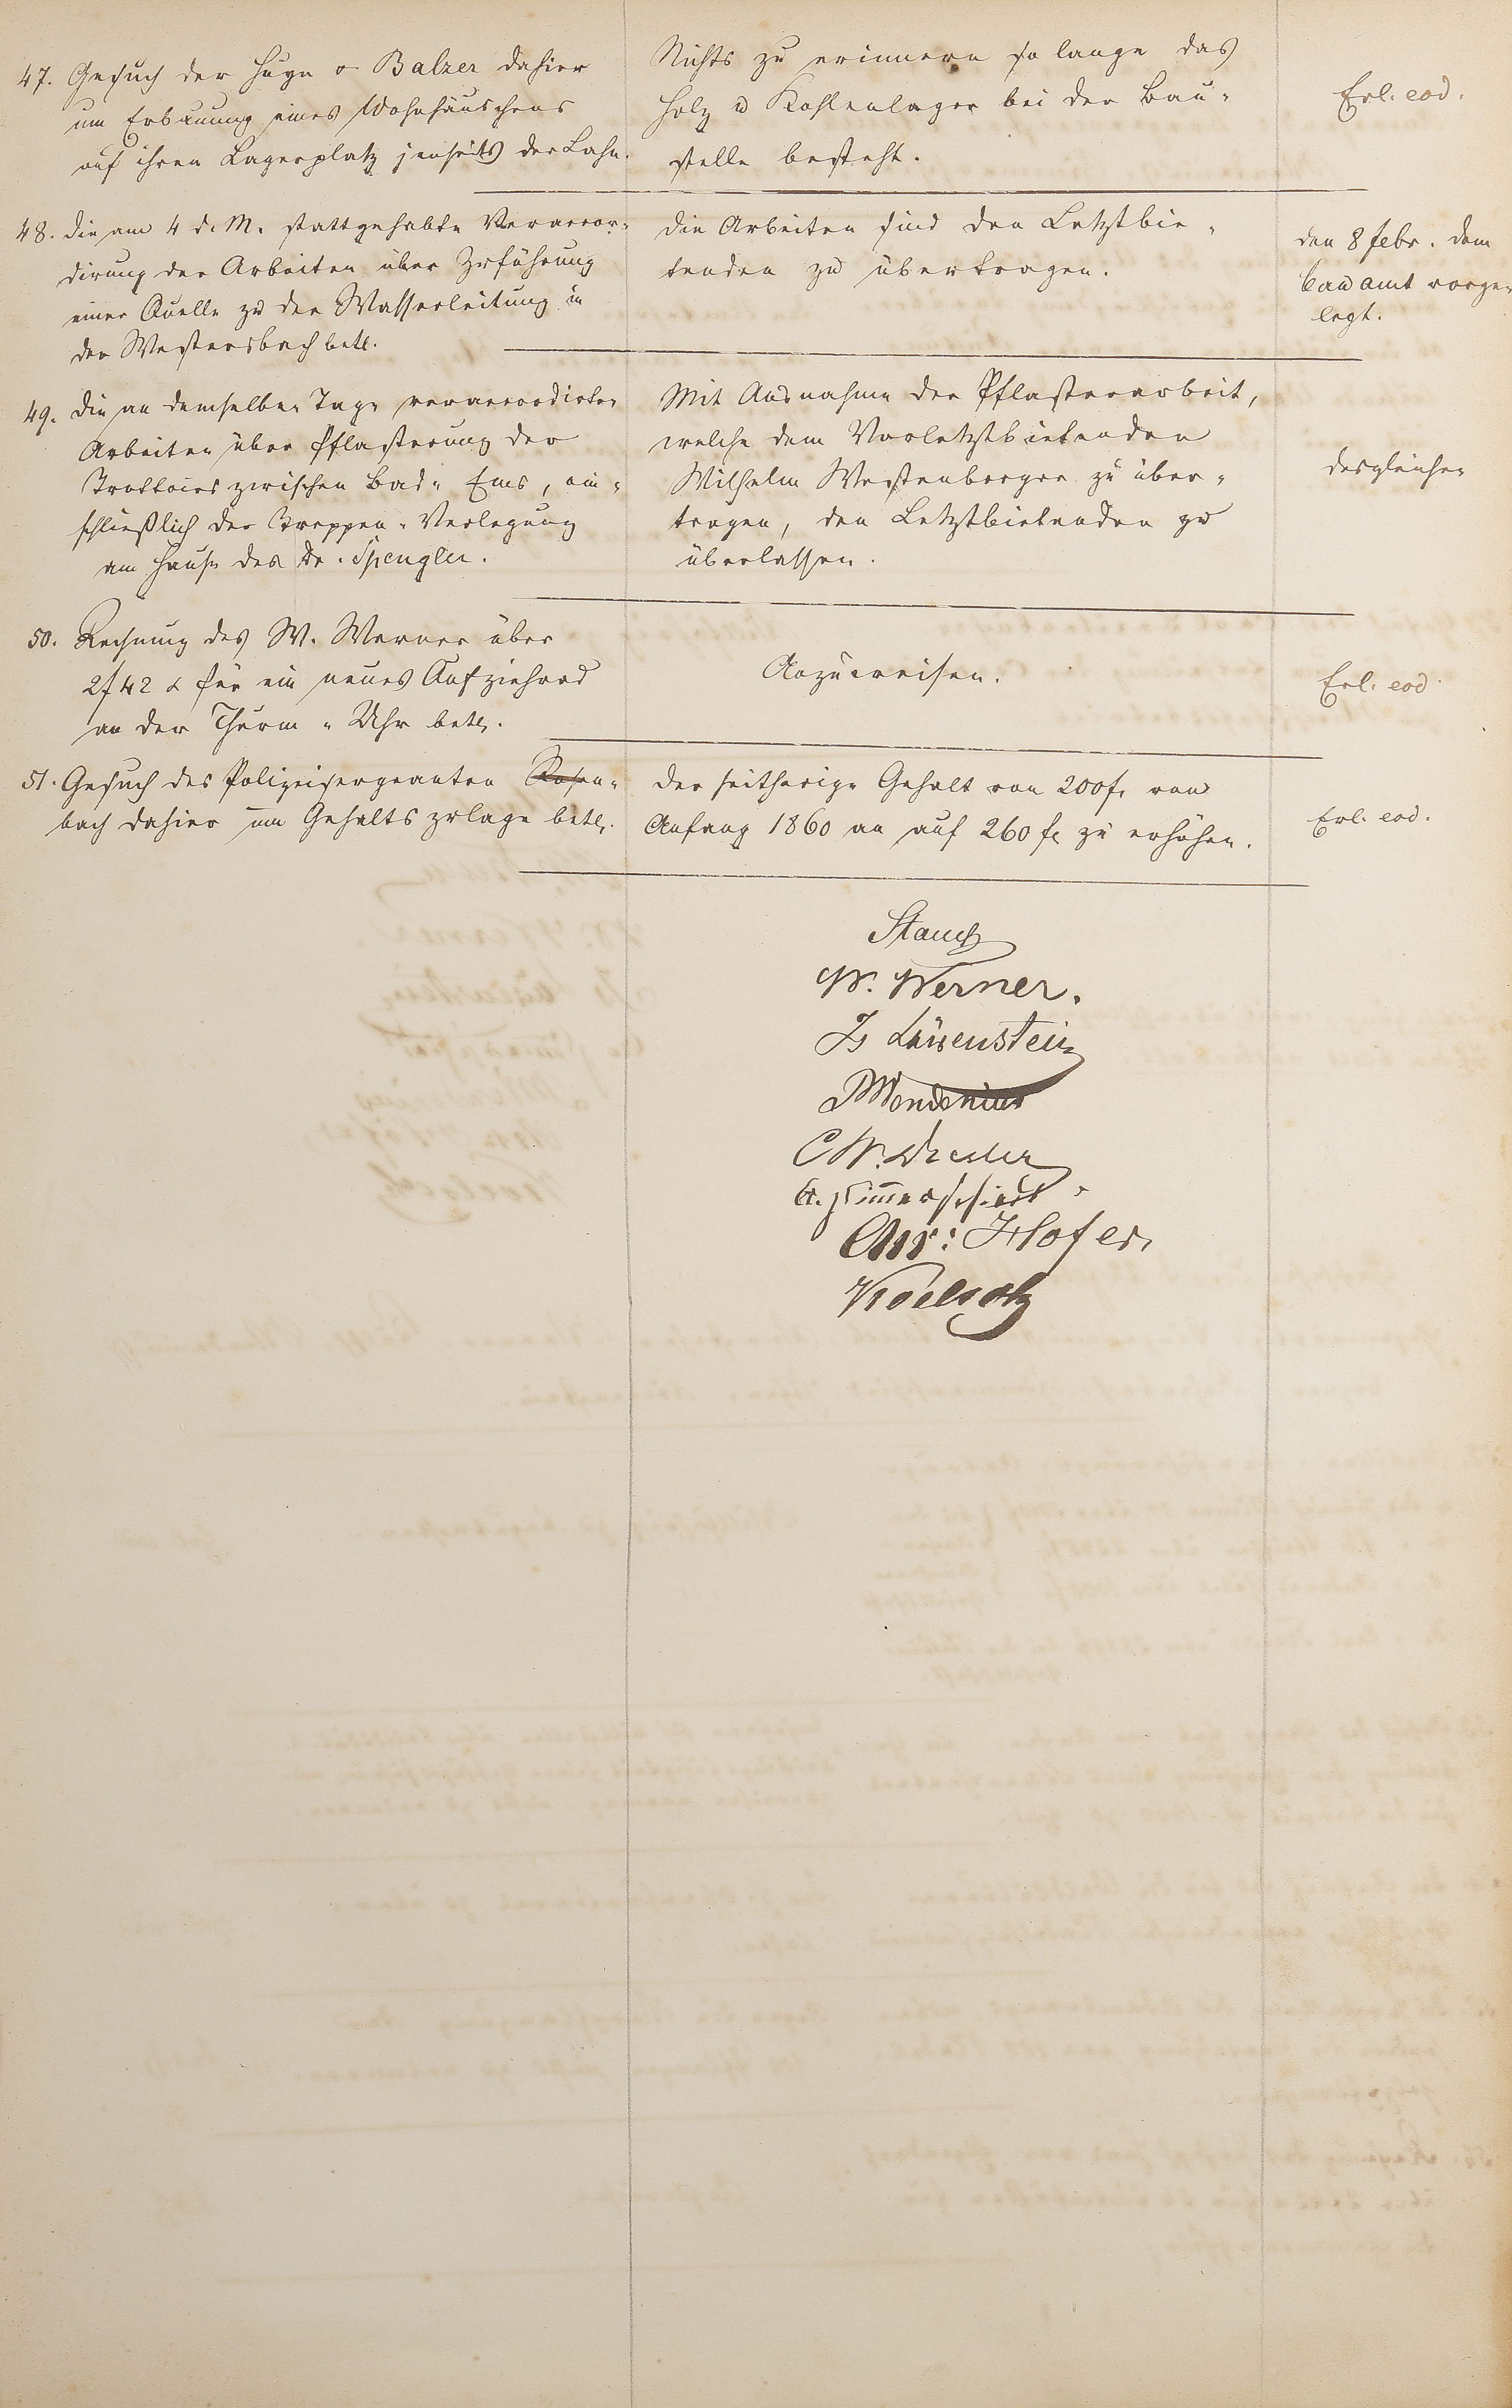 47. Gesuch der Hugo & Balzer dahier
um Erbauung eines Wohnhäuschens
auf ihren Lagerplatz jenseits der Lahn.
Nichts zu erinnern so lange das
Holz u Kohlenlager bei der Bau-
stelle besteht.
Erl. eod.
48. Die am 4 d. M. stattgehabte Veraccor-
dirung der Arbeiten über Zuführung
einer Quelle zu der Wasserleitung in
der Westersbach betr.
Die Arbeiten sind den Letztbie-
tenden zu übertragen.
den 8 febr. dem
Bauamt vorge-
legt.
49. Die an demselben Tage veraccordirten
Arbeiten über Pflasterung der
Trottoirs zwischen Bad-Ems, ein-
schließlich der Treppen-Verlegung
am Hause des Dr. Spengler.
Mit Ausnahme der Pflasterarbeit,
welche dem Vorletztbietenden
Wilhelm Westenberger zu über-
tragen, den Letztbietenden zu
überlassen.
desgleichen
50. Rechnung des W. Werner über
2 f 42 x für ein neues Aufziehrad
an der Thurm-Uhr betr.
Anzuweisen.
Erl. eod.
51. Gesuch des Polizeisergeanten Rosen-
bach dahier um Gehaltszulage betr.
Der seitherige Gehalt von 200 f. von
Anfang 1860 an auf 260 f. zu erhöhen.
Erl. eod.
W. Werner.
Löwenstein
C W.
Hofer